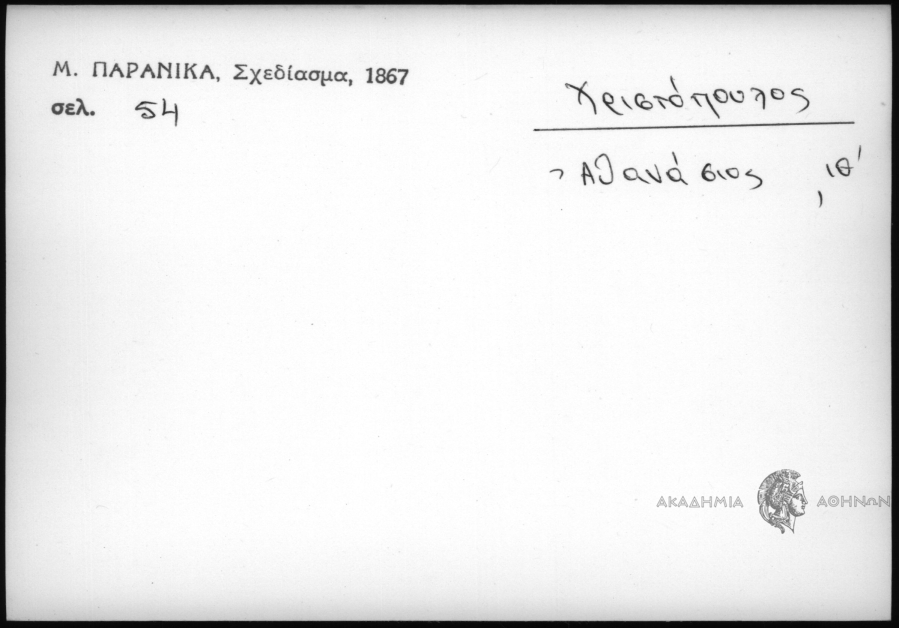 Μ. ΠΑΡΑΝΙΚΑ, Σχεδίασμα, 1867
σελ. 54
Χριστόπουλος
Ἀθανάσιος ιθ'
ΑΚΑΔΗΜΙΑ ΑΘΗΝΩΝ